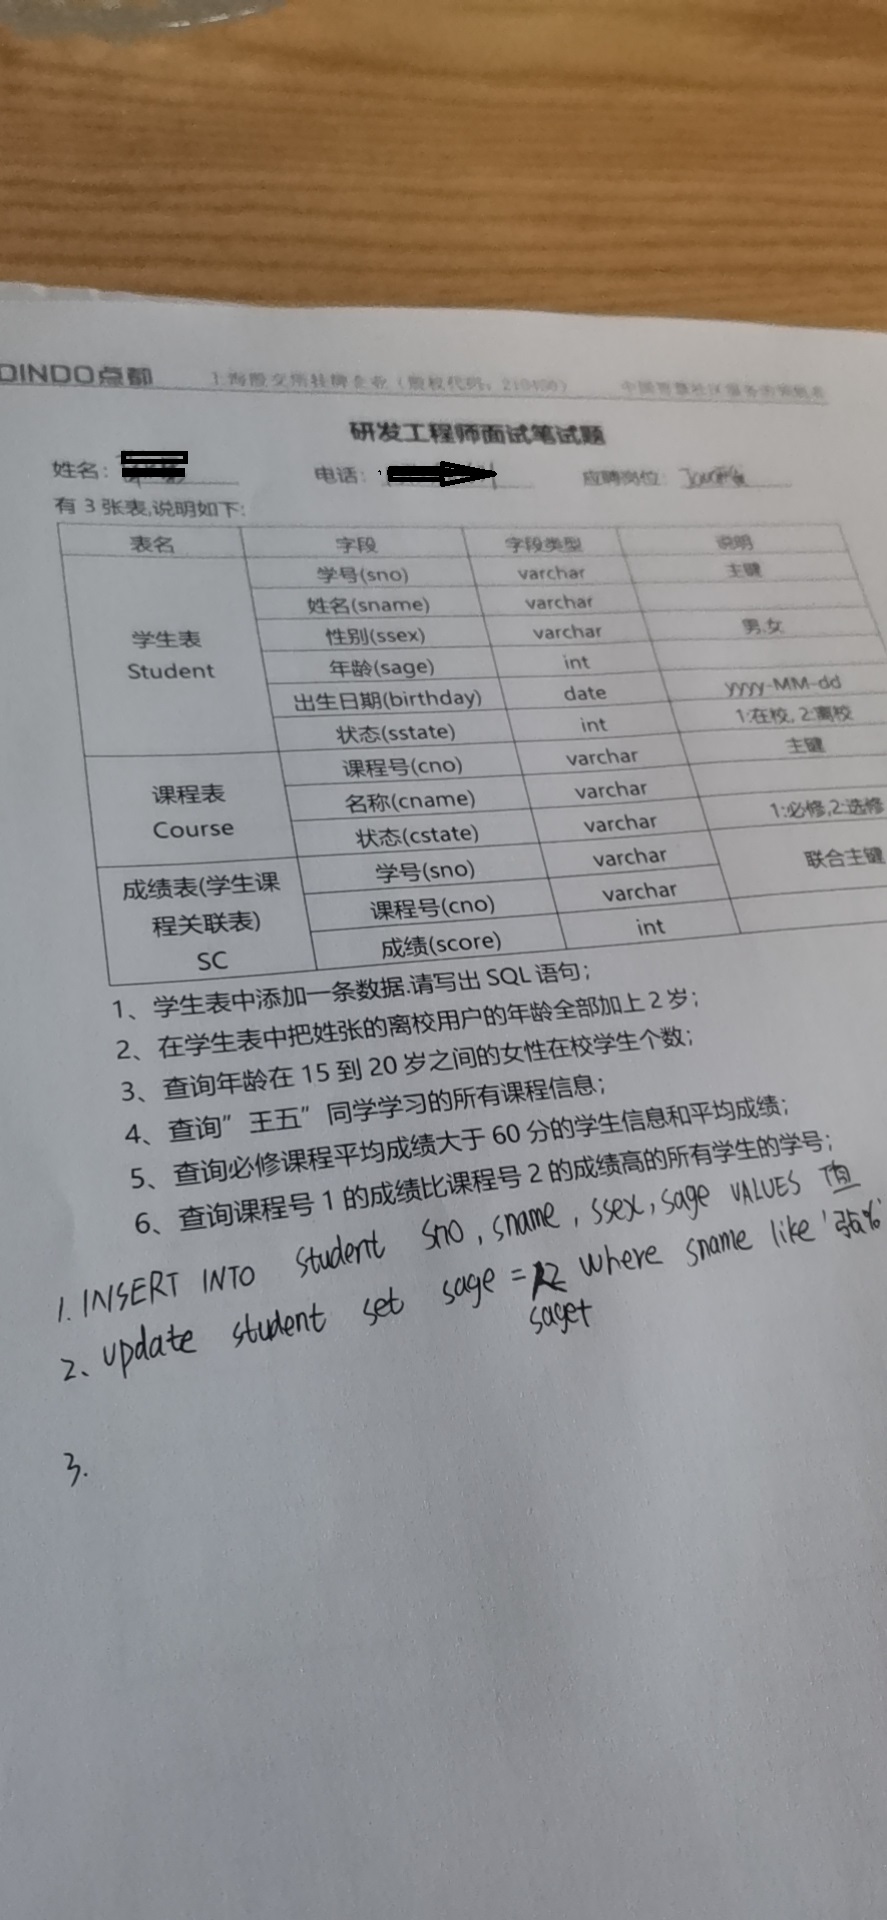 DINDO点都 上海股交所挂牌企业（股权代码：210430）
研发工程师面试笔试题
姓名： 电话： 应聘岗位：
有 3 张表,说明如下:
表名 字段 字段类型 说明
学生表 Student
学号(sno) varchar 主键
姓名(sname) varchar
性别(ssex) varchar 男,女
年龄(sage) int
出生日期(birthday) date yyyy-MM-dd
状态(sstate) int 1:在校, 2:离校
课程表 Course
课程号(cno) varchar 主键
名称(cname) varchar
状态(cstate) varchar 1:必修,2:选修
成绩表(学生课程关联表) SC
学号(sno) varchar 联合主键
课程号(cno) varchar
成绩(score) int
1、学生表中添加一条数据.请写出 SQL 语句；
2、在学生表中把姓张的离校用户的年龄全部加上 2 岁；
3、查询年龄在 15 到 20 岁之间的女性在校学生个数；
4、查询”王五”同学学习的所有课程信息；
5、查询必修课程平均成绩大于 60 分的学生信息和平均成绩；
6、查询课程号 1 的成绩比课程号 2 的成绩高的所有学生的学号；
1. INSERT INTO student sno, sname, ssex, sage VALUES 值
2、update student set sage = 2 where sname like '张%'
sage+
3.